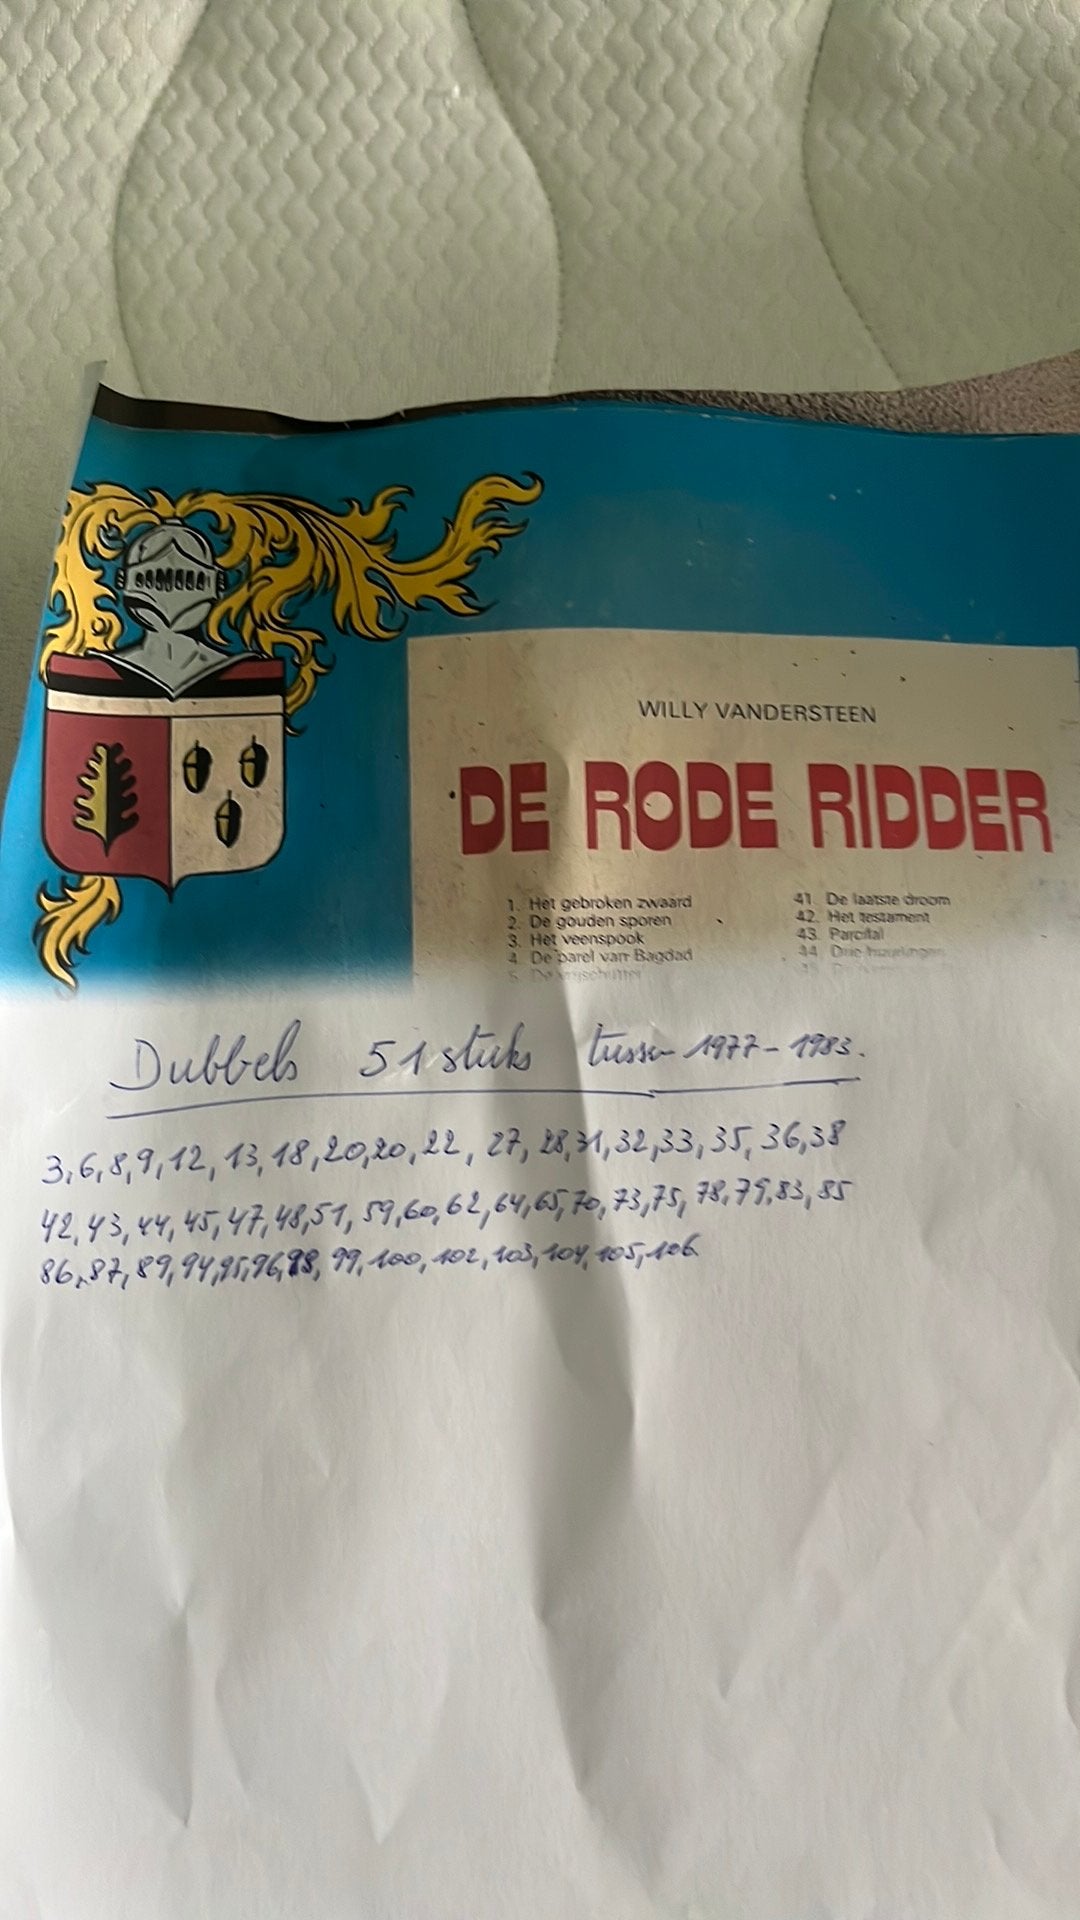 WILLY VANDERSTEEN
DE RODE RIDDER
1. Het gebroken zwaard
2. De gouden sporen
3. Het veenspook
4. De parel van Bagdad
5. De vrijschutter
41. De laatste droom
42. Het testament
43. Parcifal
44
Dubbels 51 stuks tussen 1977-1983.
3,6,8,9,12,13,18,20,20,22,27,28,31,32,33,35,36,38
42,43,44,45,47,48,51,59,60,62,64,65,70,73,75,78,79,83,85
86,87,89,94,95,96,98,99,100,102,103,104,105,106